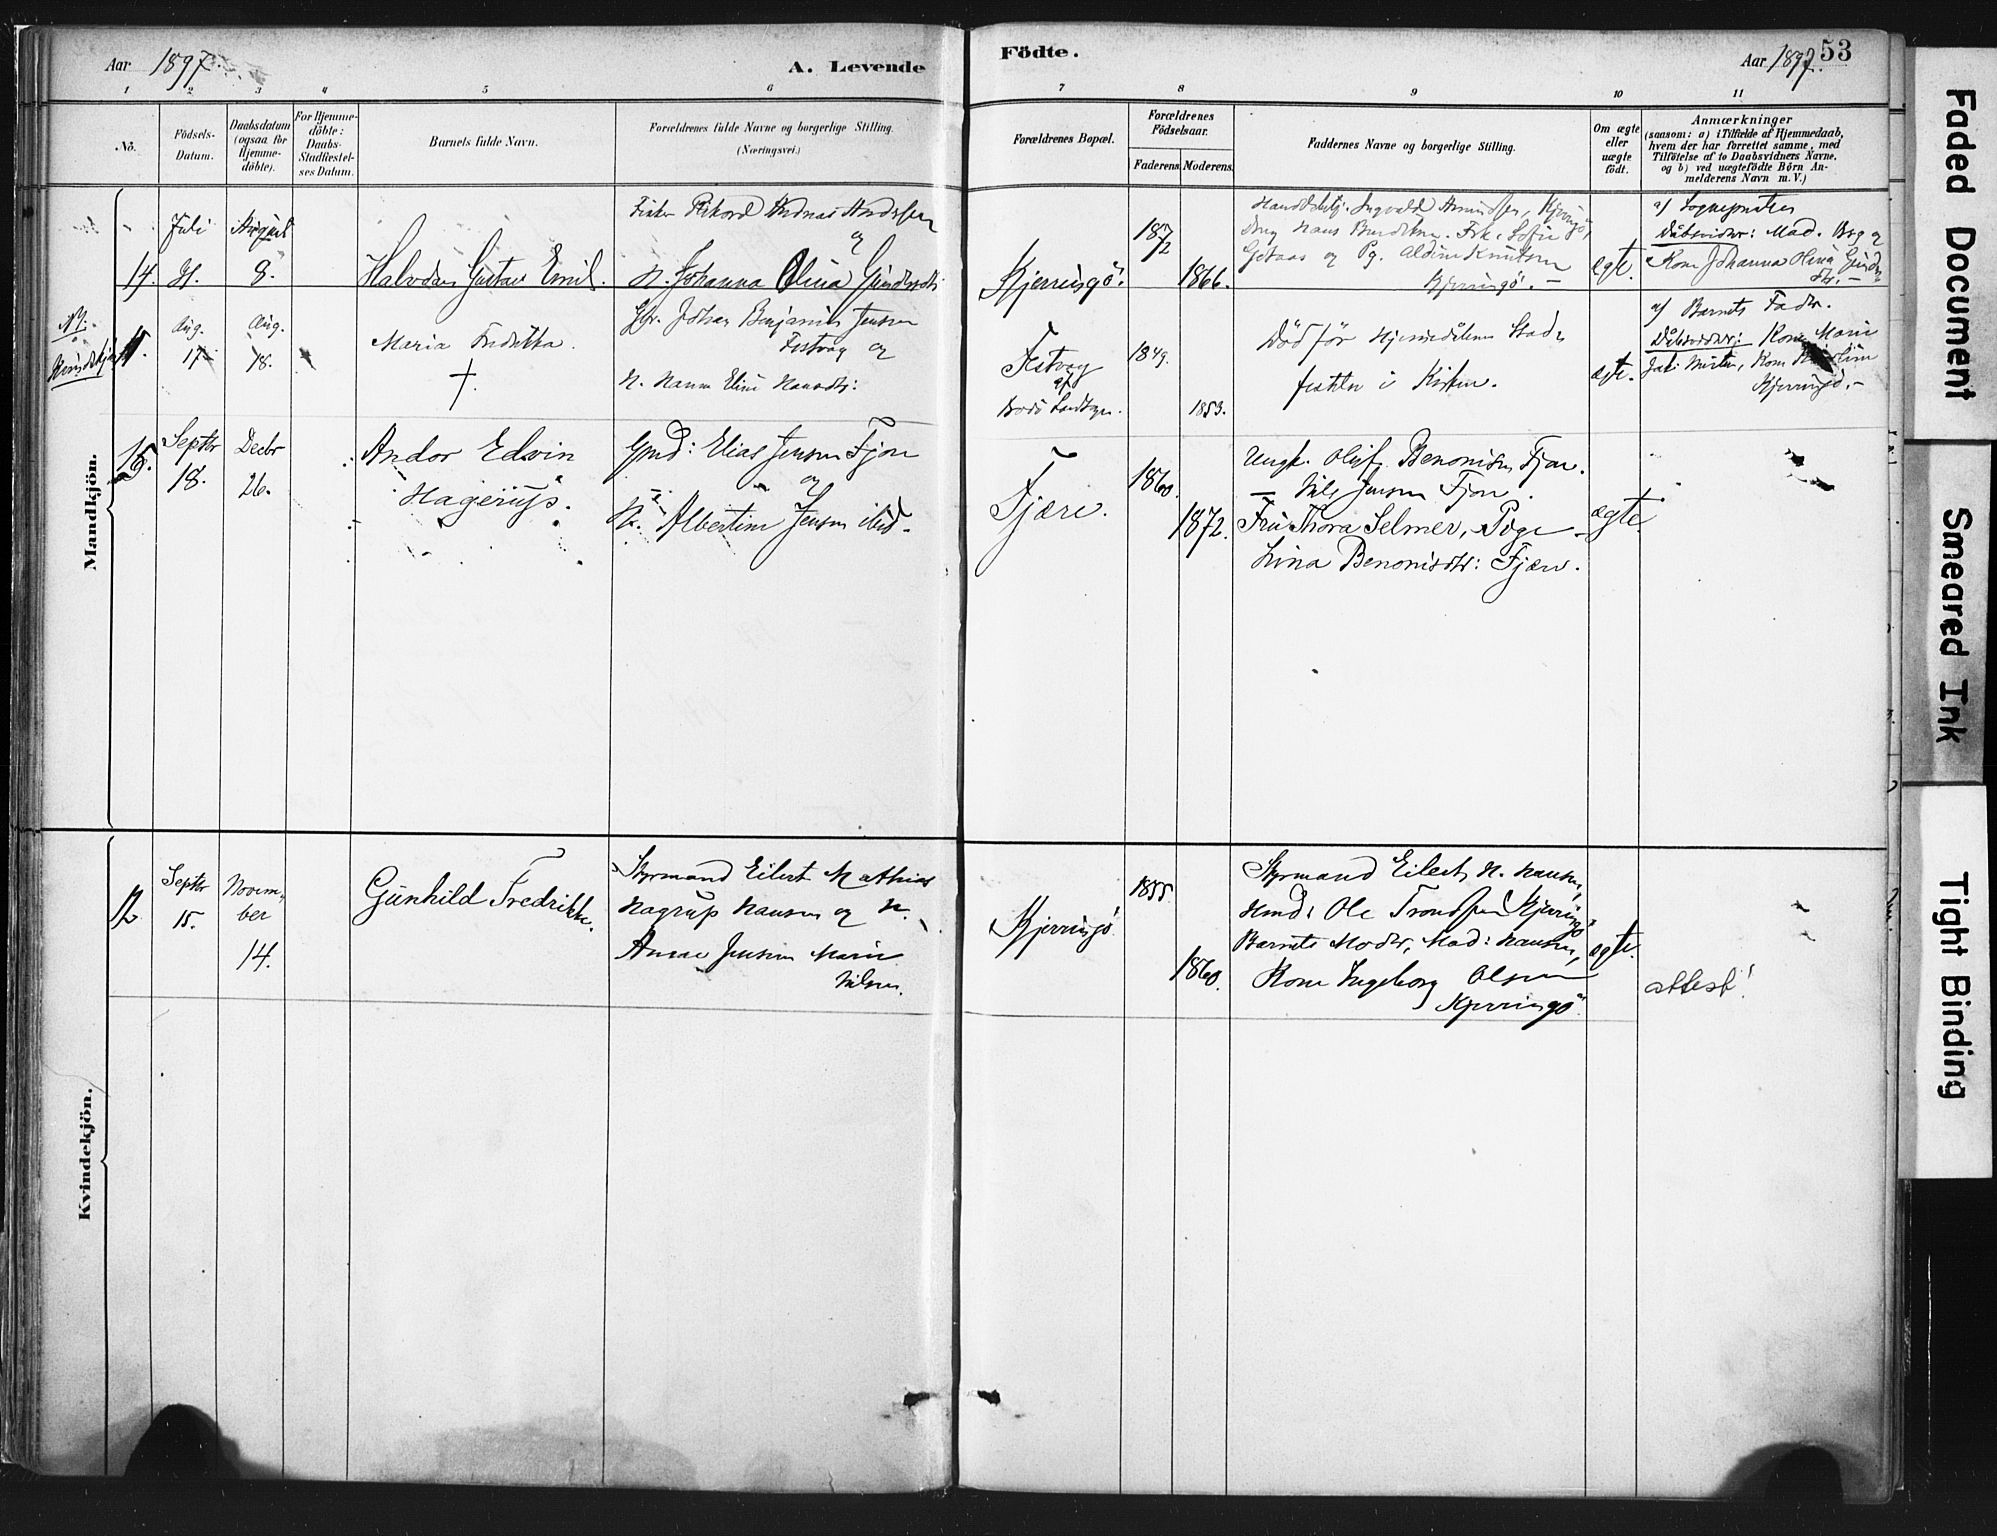 Aar 1897.
A. Levende
Födte.
Aar 1897.
53
1
2
3
4
5
6
7
8
9
10
11
No.
Födsels-
Datum.
Daabsdatum
(ogsaa for
Hjemme-
döbte).
For Hjemme-
döbte:
Daabs-
Stadfæstel-
ses Datum.
Barnets fulde Navn.
Forældrenes fulde Navne og borgerlige Stilling.
(Næringsvei.)
Forældrenes Bopæl.
Forældrenes
Födselsaar.
Faderens.
Moderens.
Faddernes Navne og borgerlige Stilling.
Om ægte
eller
uægte
födt.
Anmærkninger
(saasom: a) i Tilfælde af Hjemmedaab,
hvem der har forrettet samme, med
Tilföielse af to Daabsvidners Navne,
og b) ved uægtefödte Børn An-
melderens Navn m. V.)
Mandkjön.
14.
Juli
August
8.
Halvdan Gustav Emil.
Fisker Rikard Andreas Andersen
og
H. Johanna Olina
Kjerringö.
1872
1866.
Ingvald Amundsen,
Hans
Sofie
og Pg. Aldine Knutsen
Kjerringö. -
ægte.
a/ Sognepresten
Daabsvidner: Mad. Borg og
Kone Johanna Olina
Aug.
17
Aug.
18.
Maria Fredrikke
†
Johan Benjamin Jensen
Festvåg og
H. Hanna Eline Hansdtr:
Festvåg
Bodö Landsogn.
1849.
1853.
Död för Hjemmedåbens Stad-
festelse i Kirken.
ægte.
a/ Barnets Fader.
Dåbsvidner: Kone Marie
Kone
Kjerringö. -
15.
Septbr
18.
Decbr
26.
Andor Edvin
Hagerup.
Gmd: Elias Jensen Fjære
og
H. Albertine Jensen ibid.
Fjære.
1860.
1872.
Ungk. Oluf Benonisen Fjære.
— Nils Jensen Fjære.
Fru Thora Selmer, Pige
Lina Benonisdtr: Fjære.
ægte.
Kvindekjön.
12
Septbr
15.
Novem-
ber
14.
Gunhild Fredrikke.
Styrmand Eilert Mathias
Hagrup Hansen og H.
Anna Jensen Marie
Nilsen.
Kjerringö
1855
1860.
Styrmand Eilert H. Hansen,
Hmd: Ole Trondsen Kjerringö
Barnets Moder, Mad: Hansen,
Kone Ingeborg Olsen
Kjerringö.
ægte.
attest!
Faded Document
Smeared Ink
Tight Binding